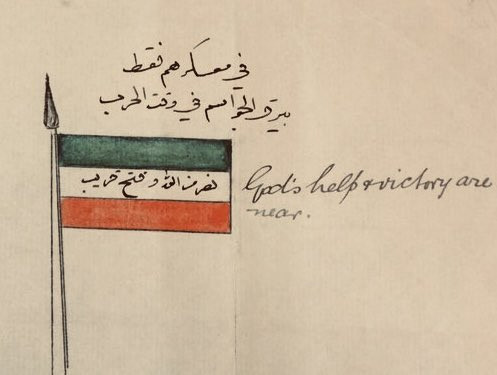 في معسكرهم فقط
بيرق الجواسم في وقت الحرب
نصر من الله وفتح قريب
God's help & victory are
near.